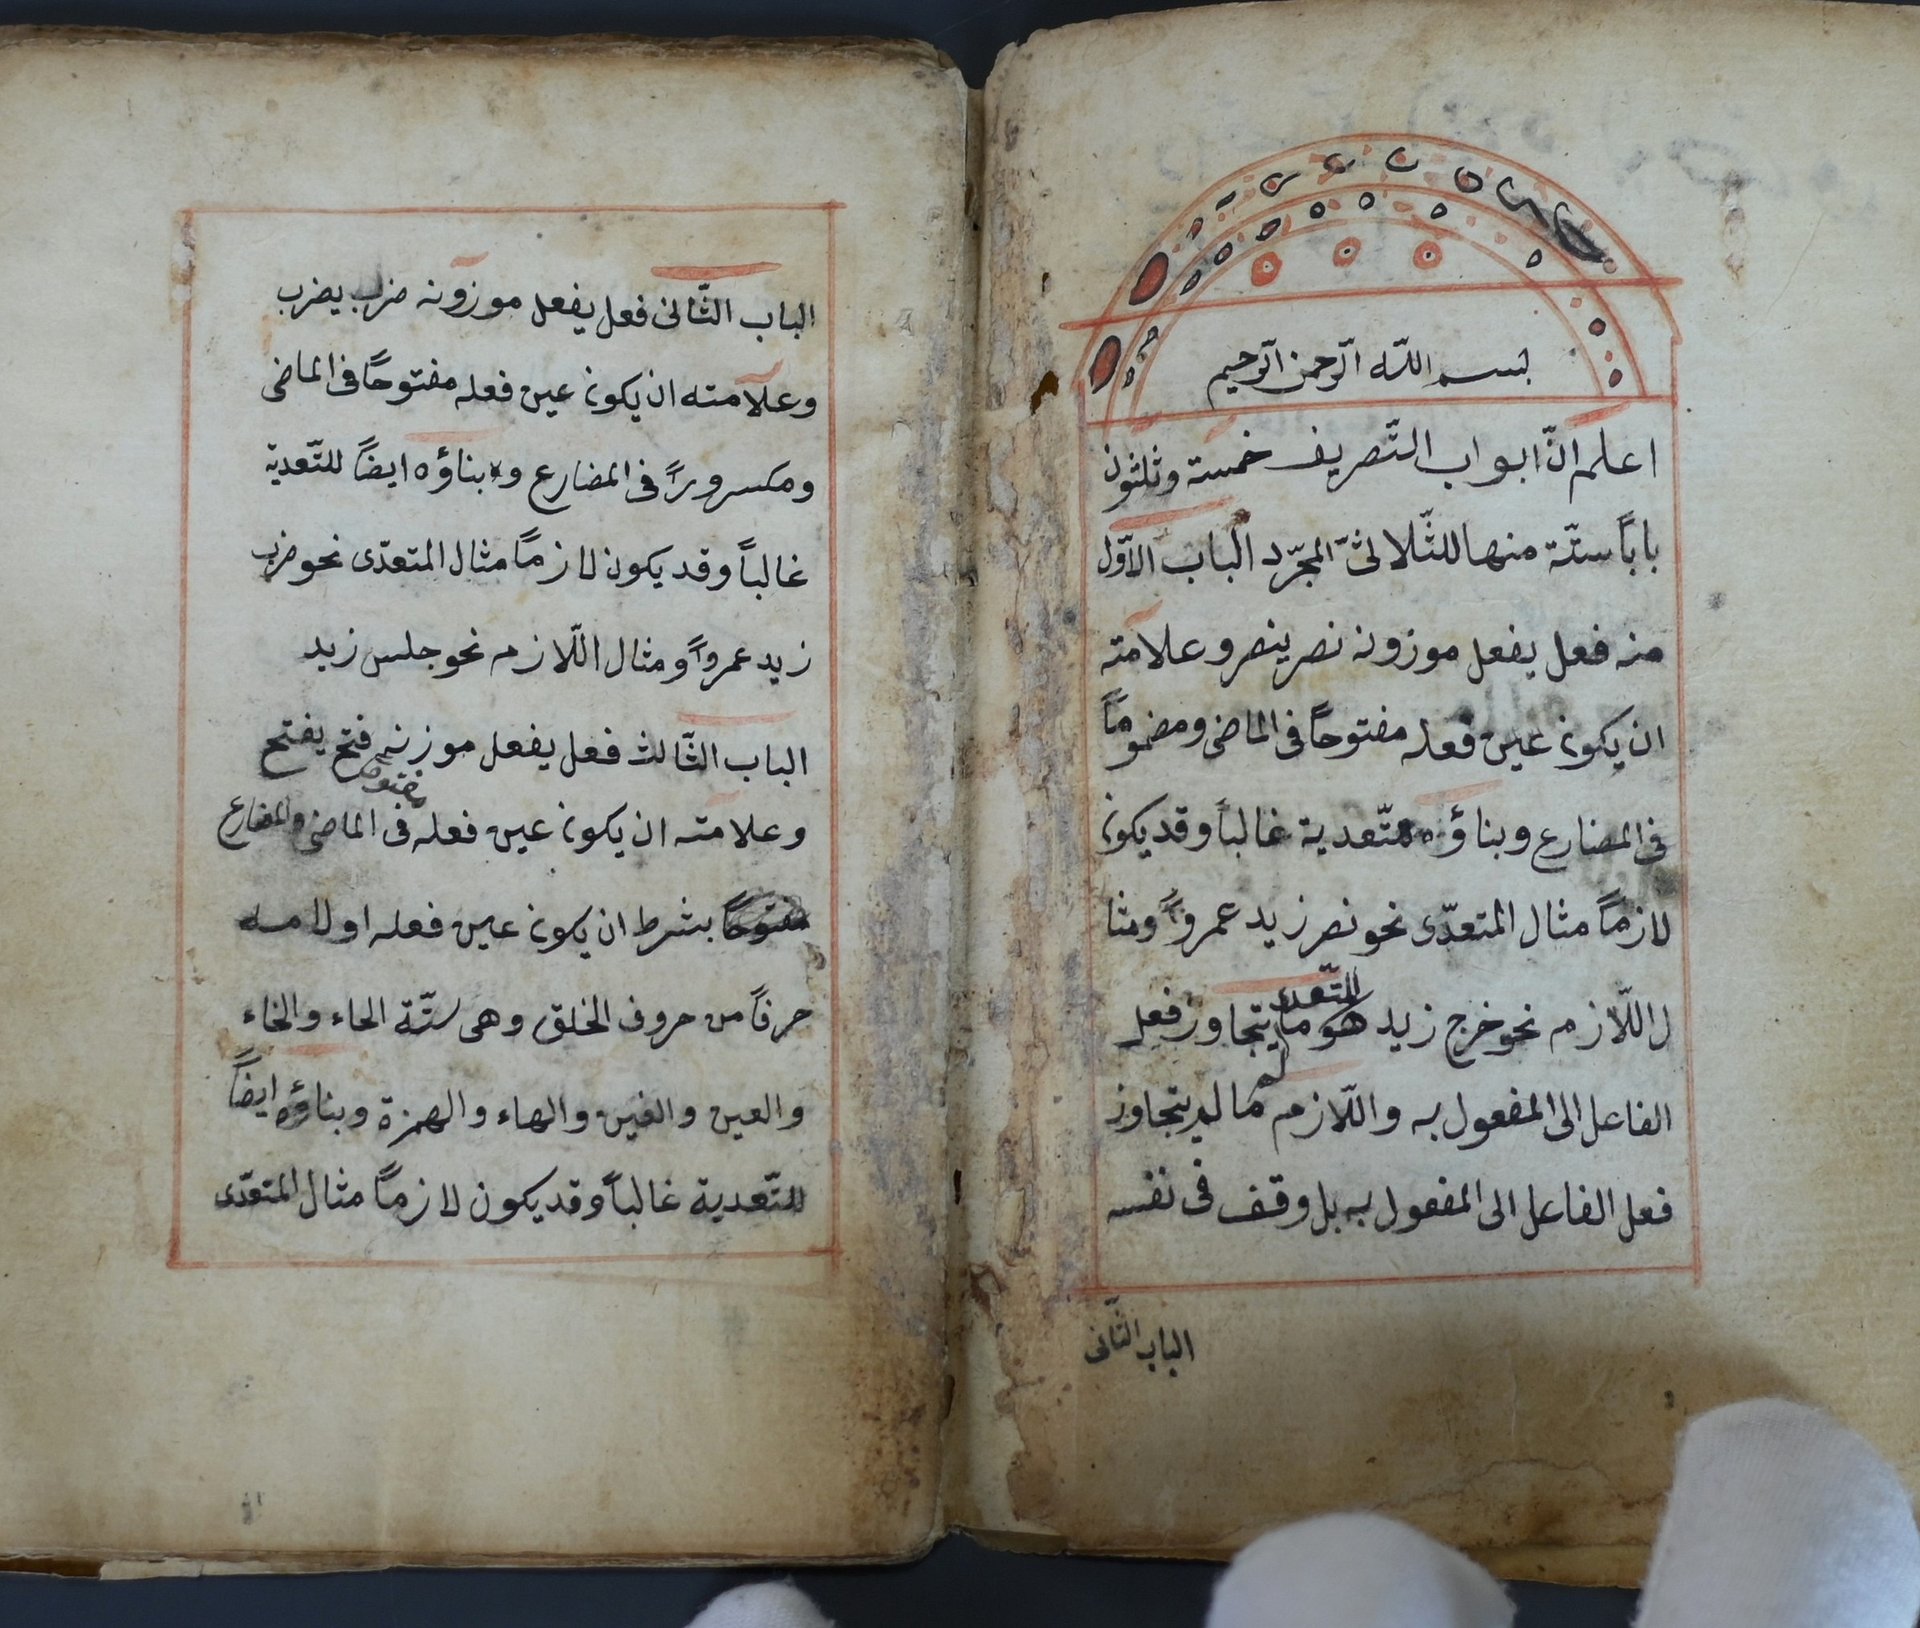 بسم اللّه الرّحمن الرّحيم
اعلم انّ ابواب التّصريف خمسة وثلثون
باباً ستّة منها للثّلاثىّ المجرّد الباب الاوّل
منه فعل يفعل موزونه نصر ينصر وعلامته
ان يكون عين فعله مفتوحاً فى الماضى ومضموماً
فى المضارع وبناؤه للتّعدية غالباً وقد يكون
لازماً مثال المتعدّى نحو نصر زيد عمرواً ومثا
ل اللّازم نحو خرج زيد هو ما يتجاوز فعل
الفاعل الى المفعول به واللّازم ما لم يتجاوز
فعل الفاعل الى المفعول به بل وقف فى نفسه
الباب الثّانى
الباب الثّانى فعل يفعل موزونه ضرب يضرب
وعلامته ان يكون عين فعله مفتوحاً فى الماضى
ومكسروراً فى المضارع وبناؤه ايضاً للتّعدية
غالباً وقد يكون لازماً مثال المتعدّى نحو ضرب
زيد عمرواً ومثال اللّازم نحو جلس زيد
الباب الثّالث فعل يفعل موزنه فتح يفتح
وعلامته ان يكون عين فعله فى الماضى والمضارع
بشرط ان يكون عين فعله او لامه
حرفاً من حروف الخلق وهى ستّة الحاء والخاء
والعين والغين والهاء والهمزة وبناؤه ايضاً
للتّعدية غالباً وقد يكون لازماً مثال المتعدّى